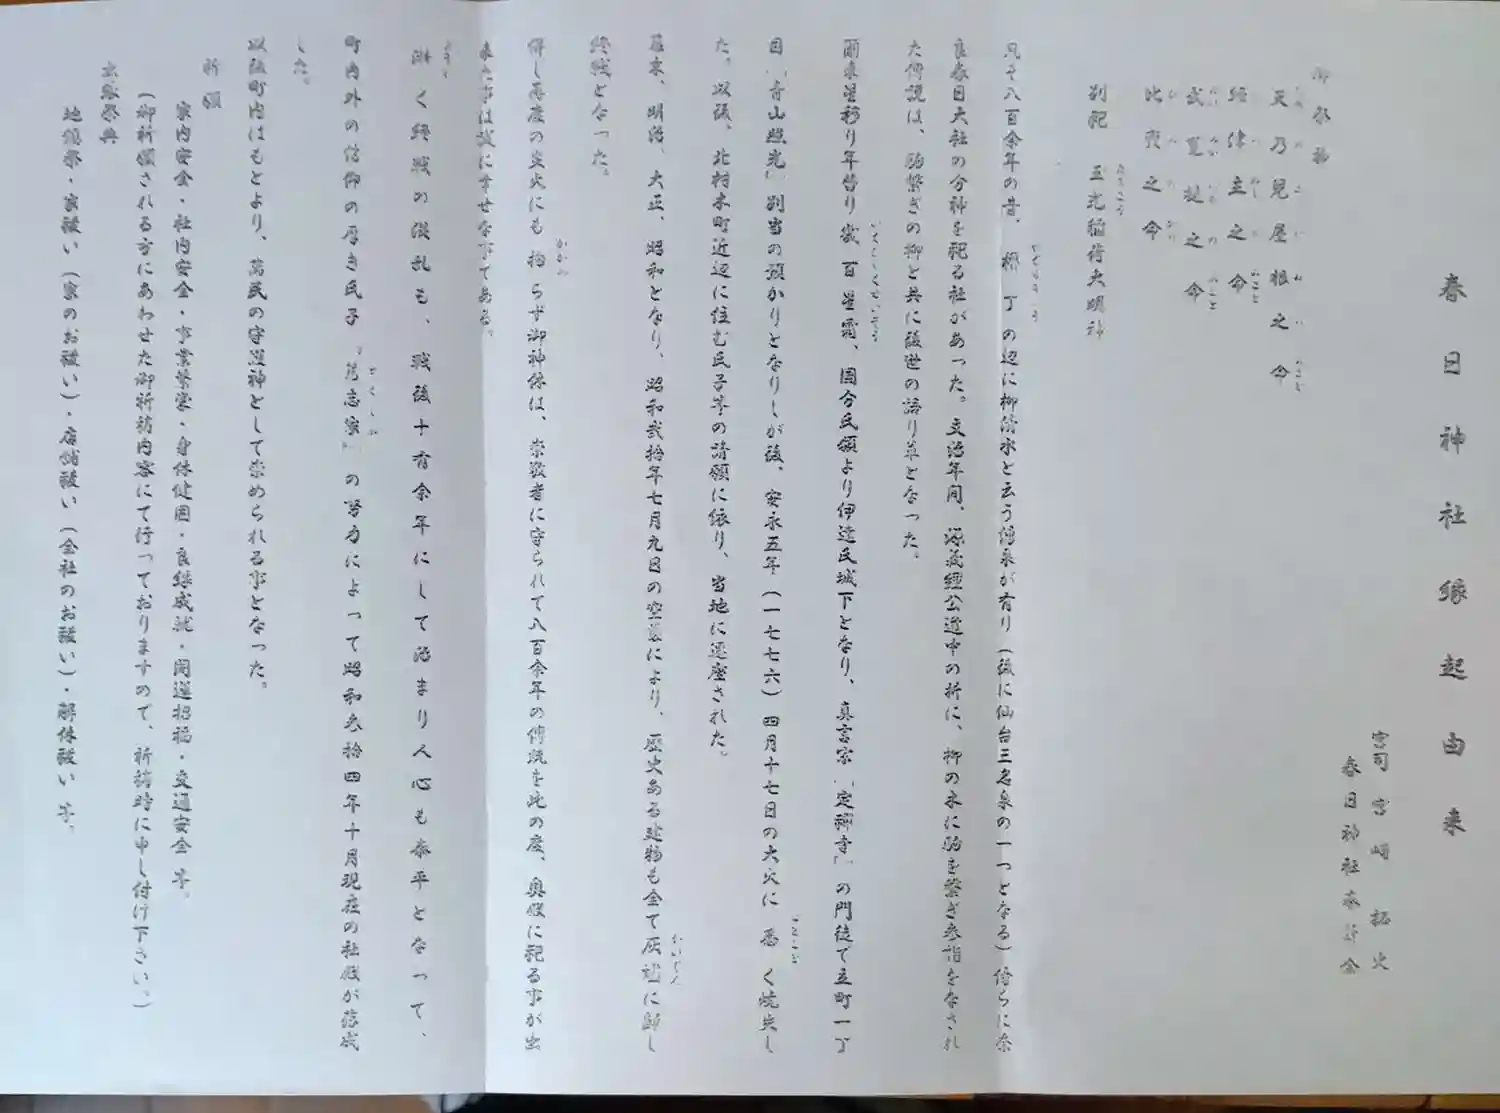 春日神社縁起由来
宮司 宮﨑 拓火
春日神社奉賛会
御祭神
天乃見屋根之命
経津主之命
武甕槌之命
比売之命
別祀 玉光稲荷大明神
凡そ八百余年の昔、 の辺に柳清水と云う湧泉が有り（後に仙台三名泉の一つとなる）傍らに奈
良春日大社の分神を祀る社があった。文治年間、源義経公道中の折に、柳の木に駒を繋ぎ参詣をなされ
た傳説は、駒繋ぎの柳と共に後世の語り草となった。
爾来星移り年替り幾百星霜、国分氏領より伊達氏城下となり、真言宗『定禅寺』の門徒で立町一丁
目『青山照光』別当の預かりとなりしが後、安永五年（一七七六）四月十七日の大火に悉く焼失し
た。以後、北材木町近辺に住む氏子等の請願に依り、当地に遷座された。
幕末、明治、大正、昭和となり、昭和弐拾年七月九日の空襲により、歴史ある建物も全て灰燼に帰し
終戦となった。
併し再度の災火にも拘らず御神体は、崇敬者に守られて八百余年の傳統を此の度、奥殿に祀る事が出
来た事は誠に幸せな事である。
く終戦の混乱も、戦後十有余年にして治まり人心も泰平となって、
町内外の信仰の厚き氏子『篤志家』の努力によって昭和参拾四年十月現在の社殿が落成
した。
以後町内はもとより、萬民の守護神として崇められる事となった。
祈願
家内安全・社内安全・事業繁栄・身体健固・良縁成就・開運招福・交通安全 等。
（御祈願される方にあわせた御祈祷内容にて行っておりますので、祈祷時に申し付け下さい。）
出張祭典
地鎮祭・家祓い（家のお祓い）・店舗祓い（会社のお祓い）・解体祓い 等。